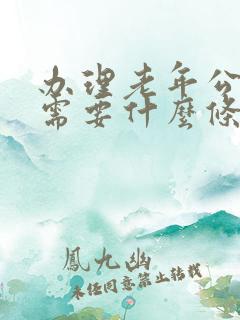 办理老年公
需要什麼條
鳳九幽
未经同意禁止转载